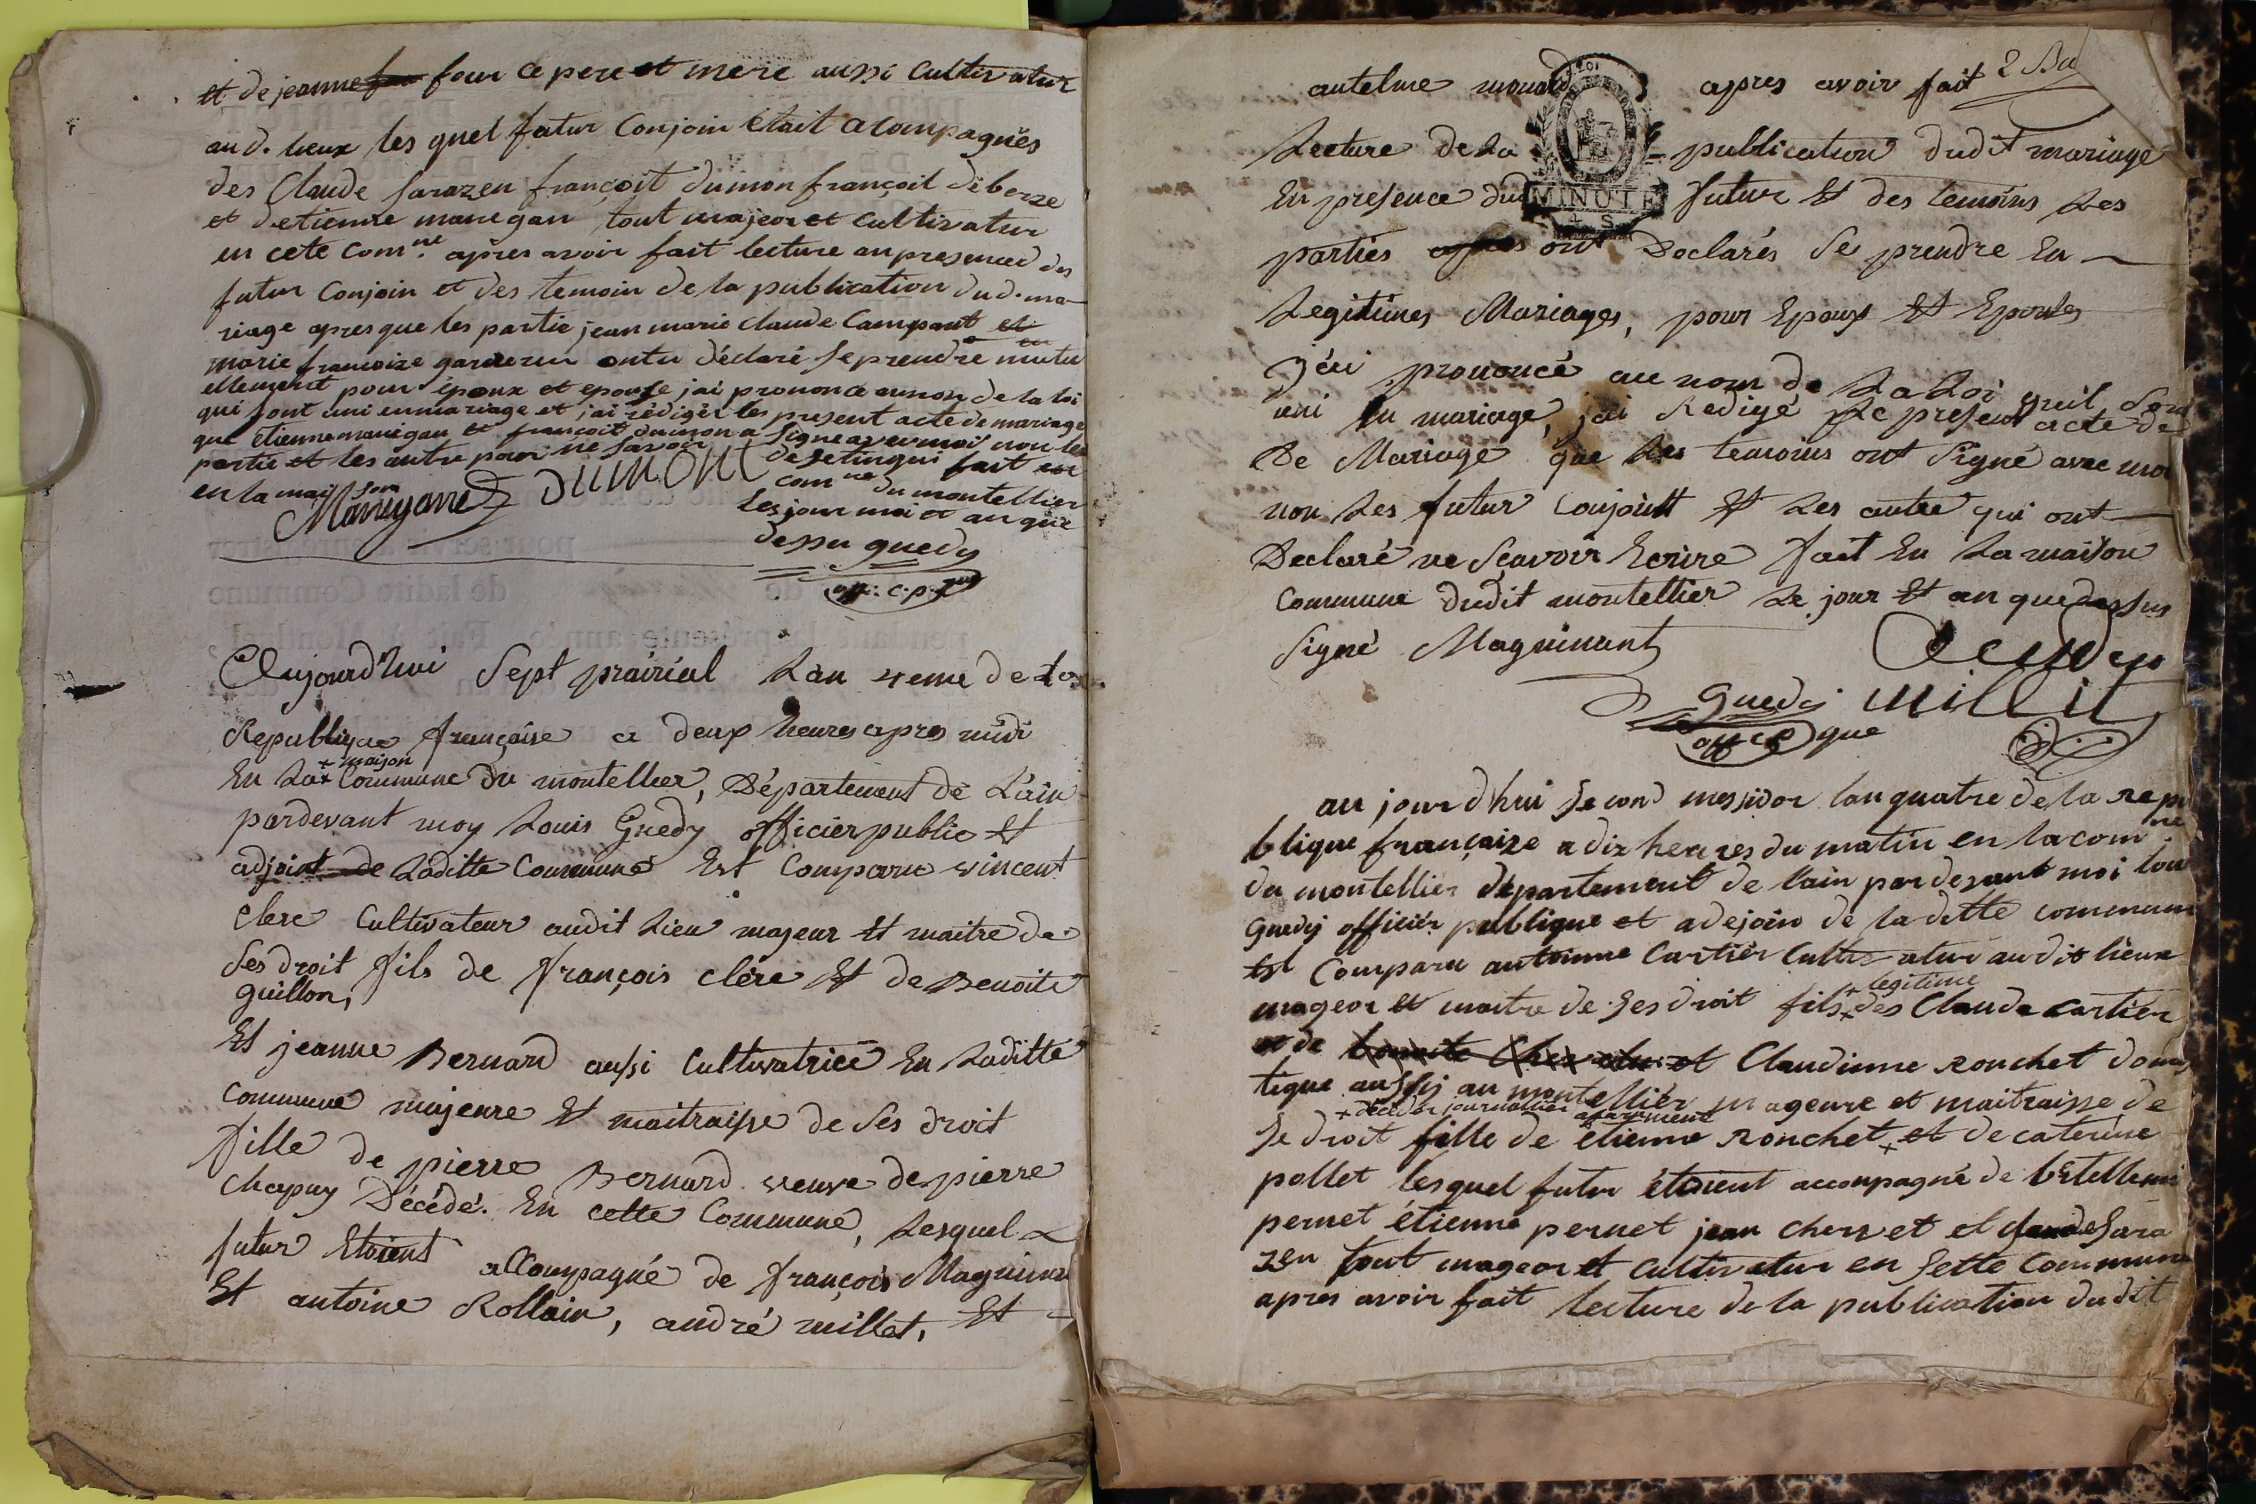 et de jeanne four ce pere et mere aussi Cultivatur
au d. lieux les quel futur Conjoin était acompagnés
des Claude Sarazen françoit dumon françoit deberze
et detienne manegan tout majeor et Cultivatur
en cete Comne. après avoir fait lecture anpresenced des
futur Conjoin et des temoin de la publication dud. ma-
riage apres que les partie jean marie Claude Campant et
marie francoize garderun ontu déclaré se prendre mutu
ellement pour époux et epouse jai prononcé aunon de la loi
qui sont uni enmariage et jai rédigér les present acte de mariage
que étienne manégan et françoit dumon a signe avec moi non les
partie et les autre pour ne savoir
de setinqui fait
en la maison
comne du montellier
les jour moi et an que
dessu guedy
Maneganne DUMONT
off. c. p. que
Aujourd'hui Sept prairial Lan 4eme de La
Republique françaíse a deux heures apres midi
+ maison
En La + Commune du montellier, Département de L'ain
pardevant moy Louis Guedy officier public Et
adjoint de Laditte Commune Est Comparu vincent
Clere Cultivateur audit Lieu majeur Et maitre de
Ses droit fils de François Clere Et de Benoite
guillon,
Et jeanne Bernard aussi Cultivatrice En Laditte
Commune majeure Et maitraisse de Ses droit
fille de pierre Bernard veuve de pierre
Chapuy Décédé. En cette Commune, Lesquel
futur Etoient accompagné de françois Maguinan
Et antoine Rollain, andré millet, Et
2
antelme monard apres avoir fait
Lecture de La publication dudit mariage
En presence dud futur Et des temoins Les
MINUTE
parties ont Declarés Se prendre En
Legitimes Mariages, pour Epoux Et Epouses
J'ai prononcé au nom de La Loi quil Sont
uni En mariage, j'ai Redigé Le present acte de
De Mariage que Les temoins ont Signé avec moi
non Les futur Conjoint Et Les autre qui ont
Declaré ne Sçavoir Ecrire fait En La maison
Commune dudit montellier Le jour Et an quedessus
Signé Maguinant
Guedy millit
off c p que
au jourdhui second messidor lan quatre de la Repu
blique françaize a dix heures du matin en la comne
du montellier département de lain pardevant moi loui
Guedy officiér publique et adejoin de ladette commune
Est Comparu antoinne Cartiér Cultivatur audit lieux
+ légitime
mageor et maitre de Ses droit fils + des Claude Cartiér
et de Claudinne Ronchet domes
tique aussy au montelliér mageure et maitraisse de
+ décéder journallier
Se droit fille de étienne Ronchet + et de caterine
pollet lesquel futur étoient accompagné de bételleme
pernet étienne pernet jean chervet et Claude Sara
zen tout mageor et Cultivatur en Sette Commune
apres avoir fait lecture de la publication dudit